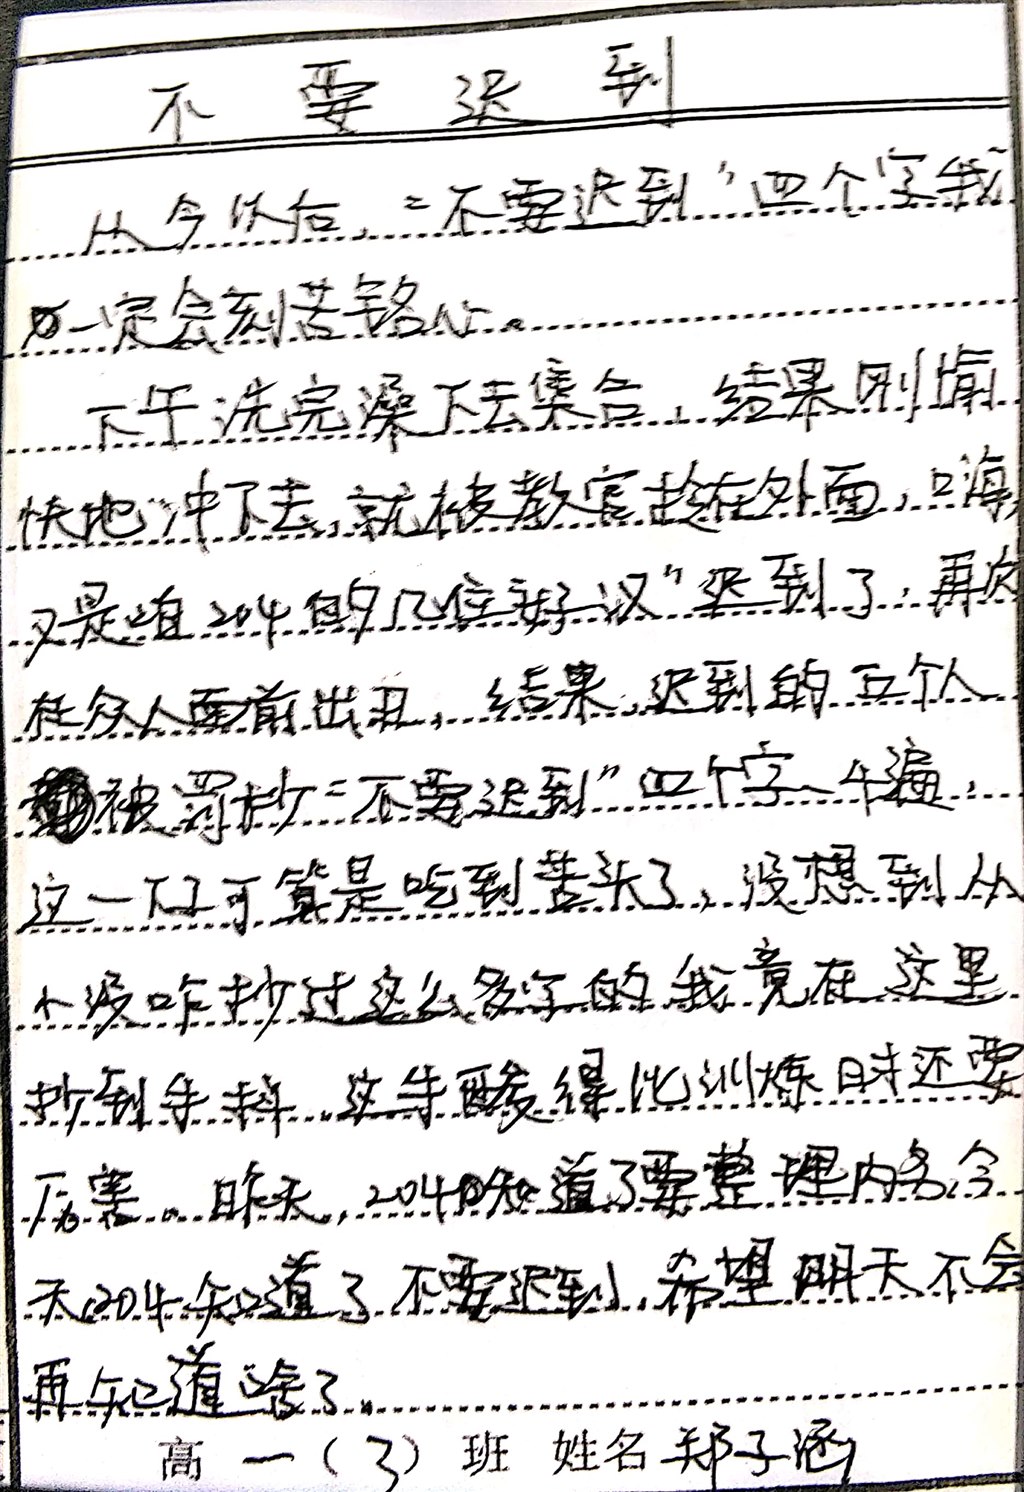 不要迟到
从今以后，“不要迟到”四个字我
一定会刻苦铭心。
下午洗完澡下去集合，结果刚愉
快地冲下去，就被教官拦在外面，嗨，
又是咱204的几位好汉”迟到了，再次
在众人面前出丑，结果，迟到的五个人
被罚抄“不要迟到”四个字一千遍，
这一下子可算是吃到苦头了，没想到从
小没咋抄过这么多字的我竟在这里
抄到手抖，这手酸得比训练时还要
厉害。昨天，204知道了要整理内务，今
天，204知道了不要迟到，希望明天不会
再知道啥了。
高一（3）班 姓名郑子涵